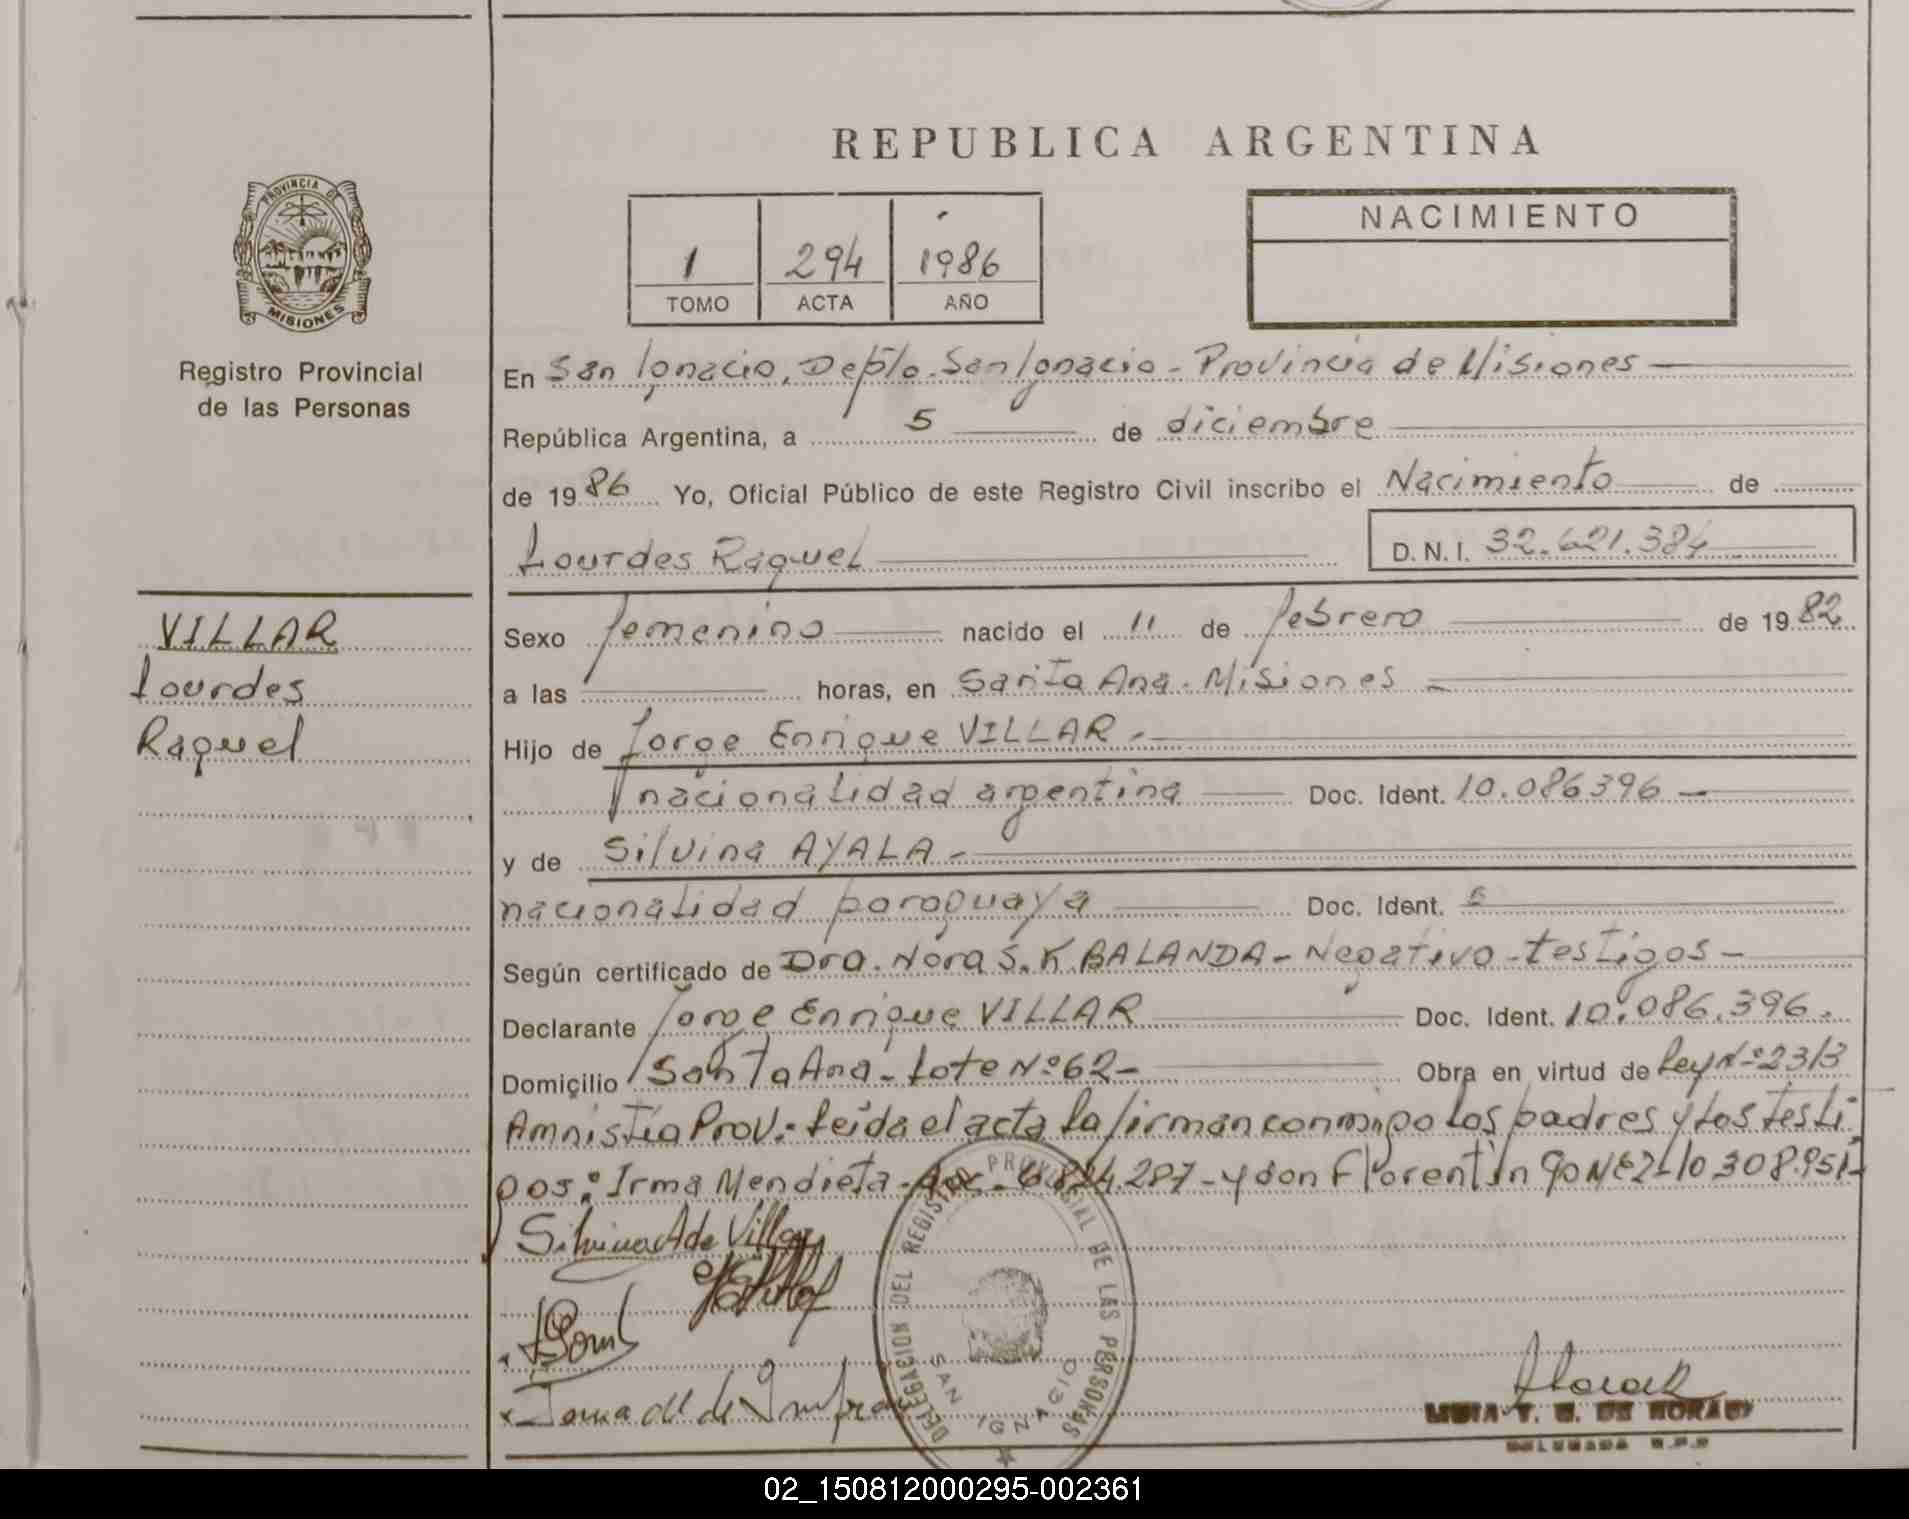 REPUBLICA ARGENTINA
PROVINCIA DE
MISIONES
Registro Provincial
de las Personas
1 294 1986
TOMO ACTA AÑO
NACIMIENTO
En San Ignacio, Depto. San Ignacio - Provincia de Misiones
República Argentina, a 5 de diciembre
de 1986 Yo, Oficial Público de este Registro Civil inscribo el Nacimiento de
Lourdes Raquel D.N.I. 32.621.384
VILLAR
Lourdes
Raquel
Sexo femenino nacido el 11 de febrero de 1982
a las horas, en Santa Ana - Misiones
Hijo de Jorge Enrique VILLAR -
nacionalidad argentina Doc. Ident. 10.086396 -
y de Silvina AYALA -
nacionalidad paraguaya Doc. Ident.
Según certificado de Dra. Nora S. K. BALANDA - Negativo - testigos -
Declarante Jorge Enrique VILLAR Doc. Ident. 10.086.396.
Domicilio Santa Ana - Lote Nº 62 - Obra en virtud de Ley Nº 2313
Amnistía Prov. - Leída el acta la firman conmigo los padres y los testi
gos: Irma Mendieta - 6.824.287 - y don Florentín 10.308.951-
Silvina A de Villar
DELEGACION DEL REGISTRO PROVINCIAL DE LAS PERSONAS
SAN IGNACIO
02_150812000295-002361